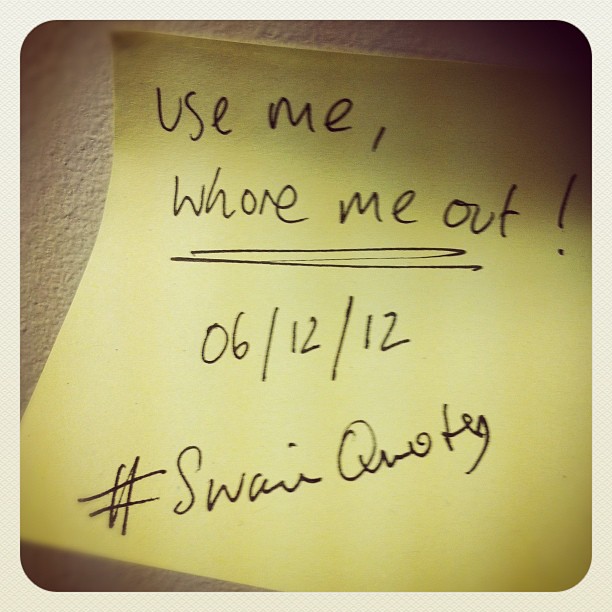 Use me,
whore me out!
06/12/12
#SwainQuotes